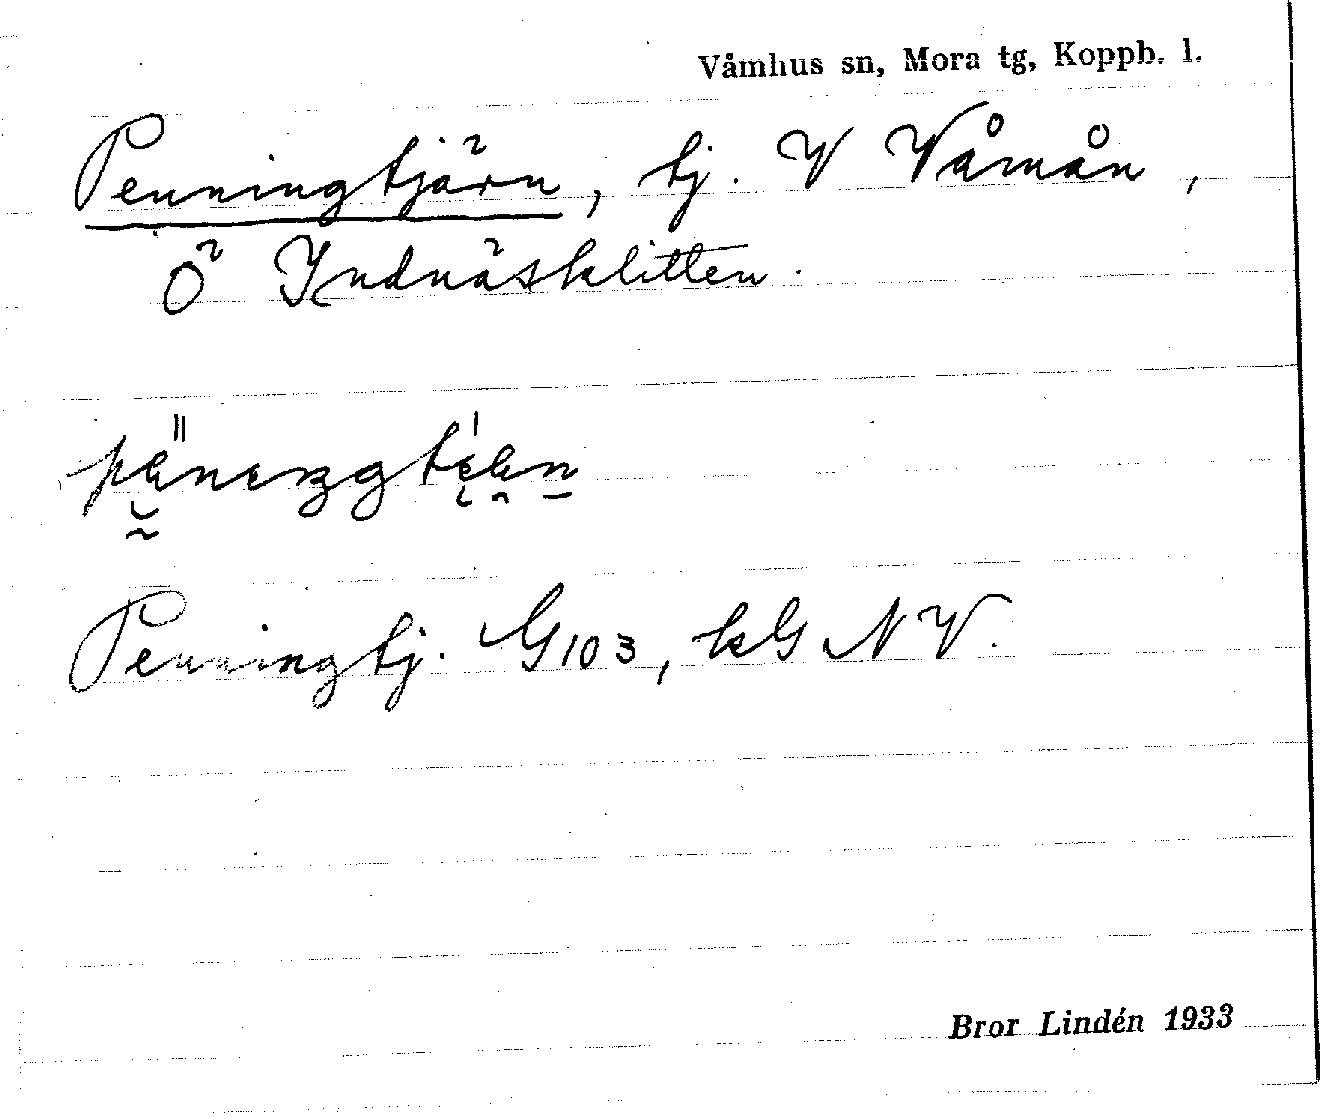 Våmhus sn, Mora tg, Koppb. l.
Penningtjärn, tj. V Våmån,
Ö Indnäsklitten.
Penningtj. G103, kG NV.
Bror Lindén 1933